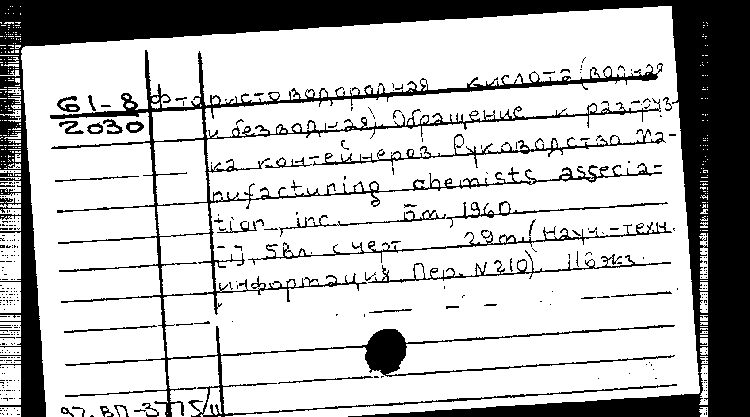 61-8
2030
Фтористоводородная кислота (водная
и безводная). Обращение и разгруз-
ка контейнеров. Руководство Ma-
nufacturing chemists associa-
tion, inc. Бm, 1960.
[1], 58л. с черт 29т. (Науч.-техн.
информация Пер. N210) 116 экз.
97. ВП-3775/11